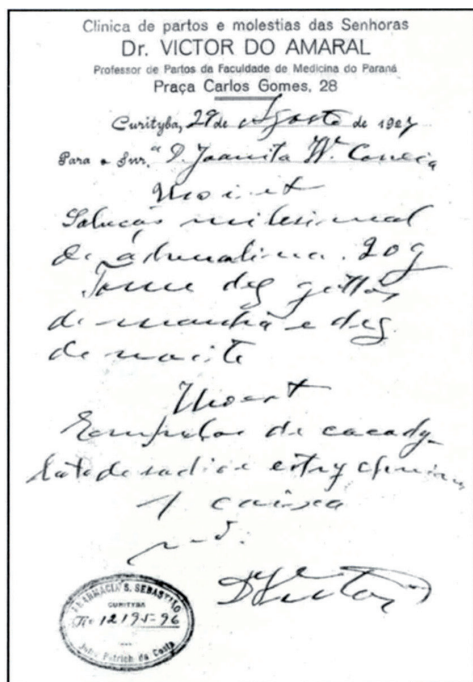 Clinica de partos e molestias das Senhoras
Dr. VICTOR DO AMARAL
Professor de Partos da Faculdade de Medicina do Paraná
Praça Carlos Gomes, 28
Curityba, 29 de Agosto de 1927
Para a Snr.ª D. Joanita W. Correia
Solução milesimal
de adrenalina. 20 g
Tome dez gottas
de manhã e dez
de noite
Empolas de cacody-
lato de sodio e estrychnina
1 caixa
Dr Victor
PHARMACIA S. SEBASTIÃO
CURITYBA
No 12195-96
João Patrich da Costa